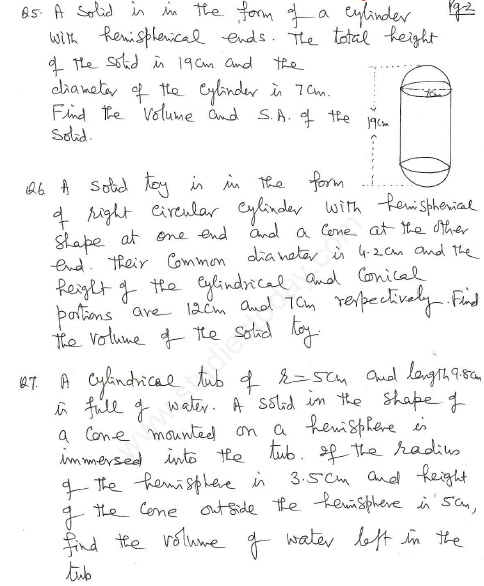 Pg 2
Q5. A Solid is in the form of a cylinder
with hemispherical ends. The total height
of the solid is 19cm and the
diameter of the cylinder is 7cm.
Find the volume and S.A. of the
Solid.
19cm
7cm
Q6 A solid toy is in the form
of right circular cylinder with hemispherical
shape at one end and a cone at the other
end. Their common diameter is 4.2cm and the
height of the cylindrical and conical
portions are 12cm and 7cm respectively. Find
the volume of the solid toy.
Q7. A cylindrical tub of r=5cm and length 9.8cm
is full of water. A solid in the shape of
a cone mounted on a hemisphere is
immersed into the tub. If the radius
of the hemisphere is 3.5cm and height
of the cone outside the hemisphere is 5cm,
find the volume of water left in the
tub